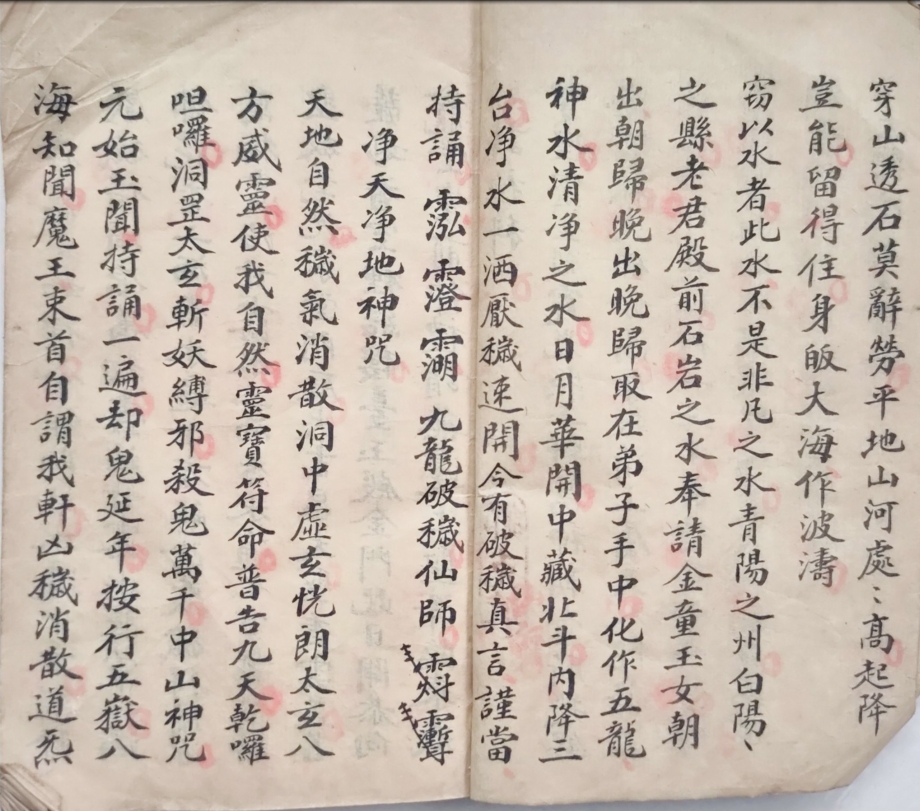 穿山透石莫辭勞平地山河處〻高起降
豈能留得住身皈大海作波濤
窃以水者此水不是非凡之水青陽之州白陽〻
之縣老君殿前石岩之水奉請金童玉女朝
出朝歸晚出晚歸取在弟子手中化作五龍
神水清净之水日月華開中藏北斗内降三
台净水一洒厭穢速開今有破穢真言謹當
持誦 霐霯霘九龍破穢仙師
净天净地神咒
天地自然穢氣消散洞中虛玄恍朗太玄八
方威靈使我自然靈寶符命普告九天乾囉
呾囉洞罡太玄斬妖縛邪殺鬼萬千中山神咒
元始玉聞持誦一遍却鬼延年按行五嶽八
海知聞魔王束首自謂我軒凶穢消散道炁